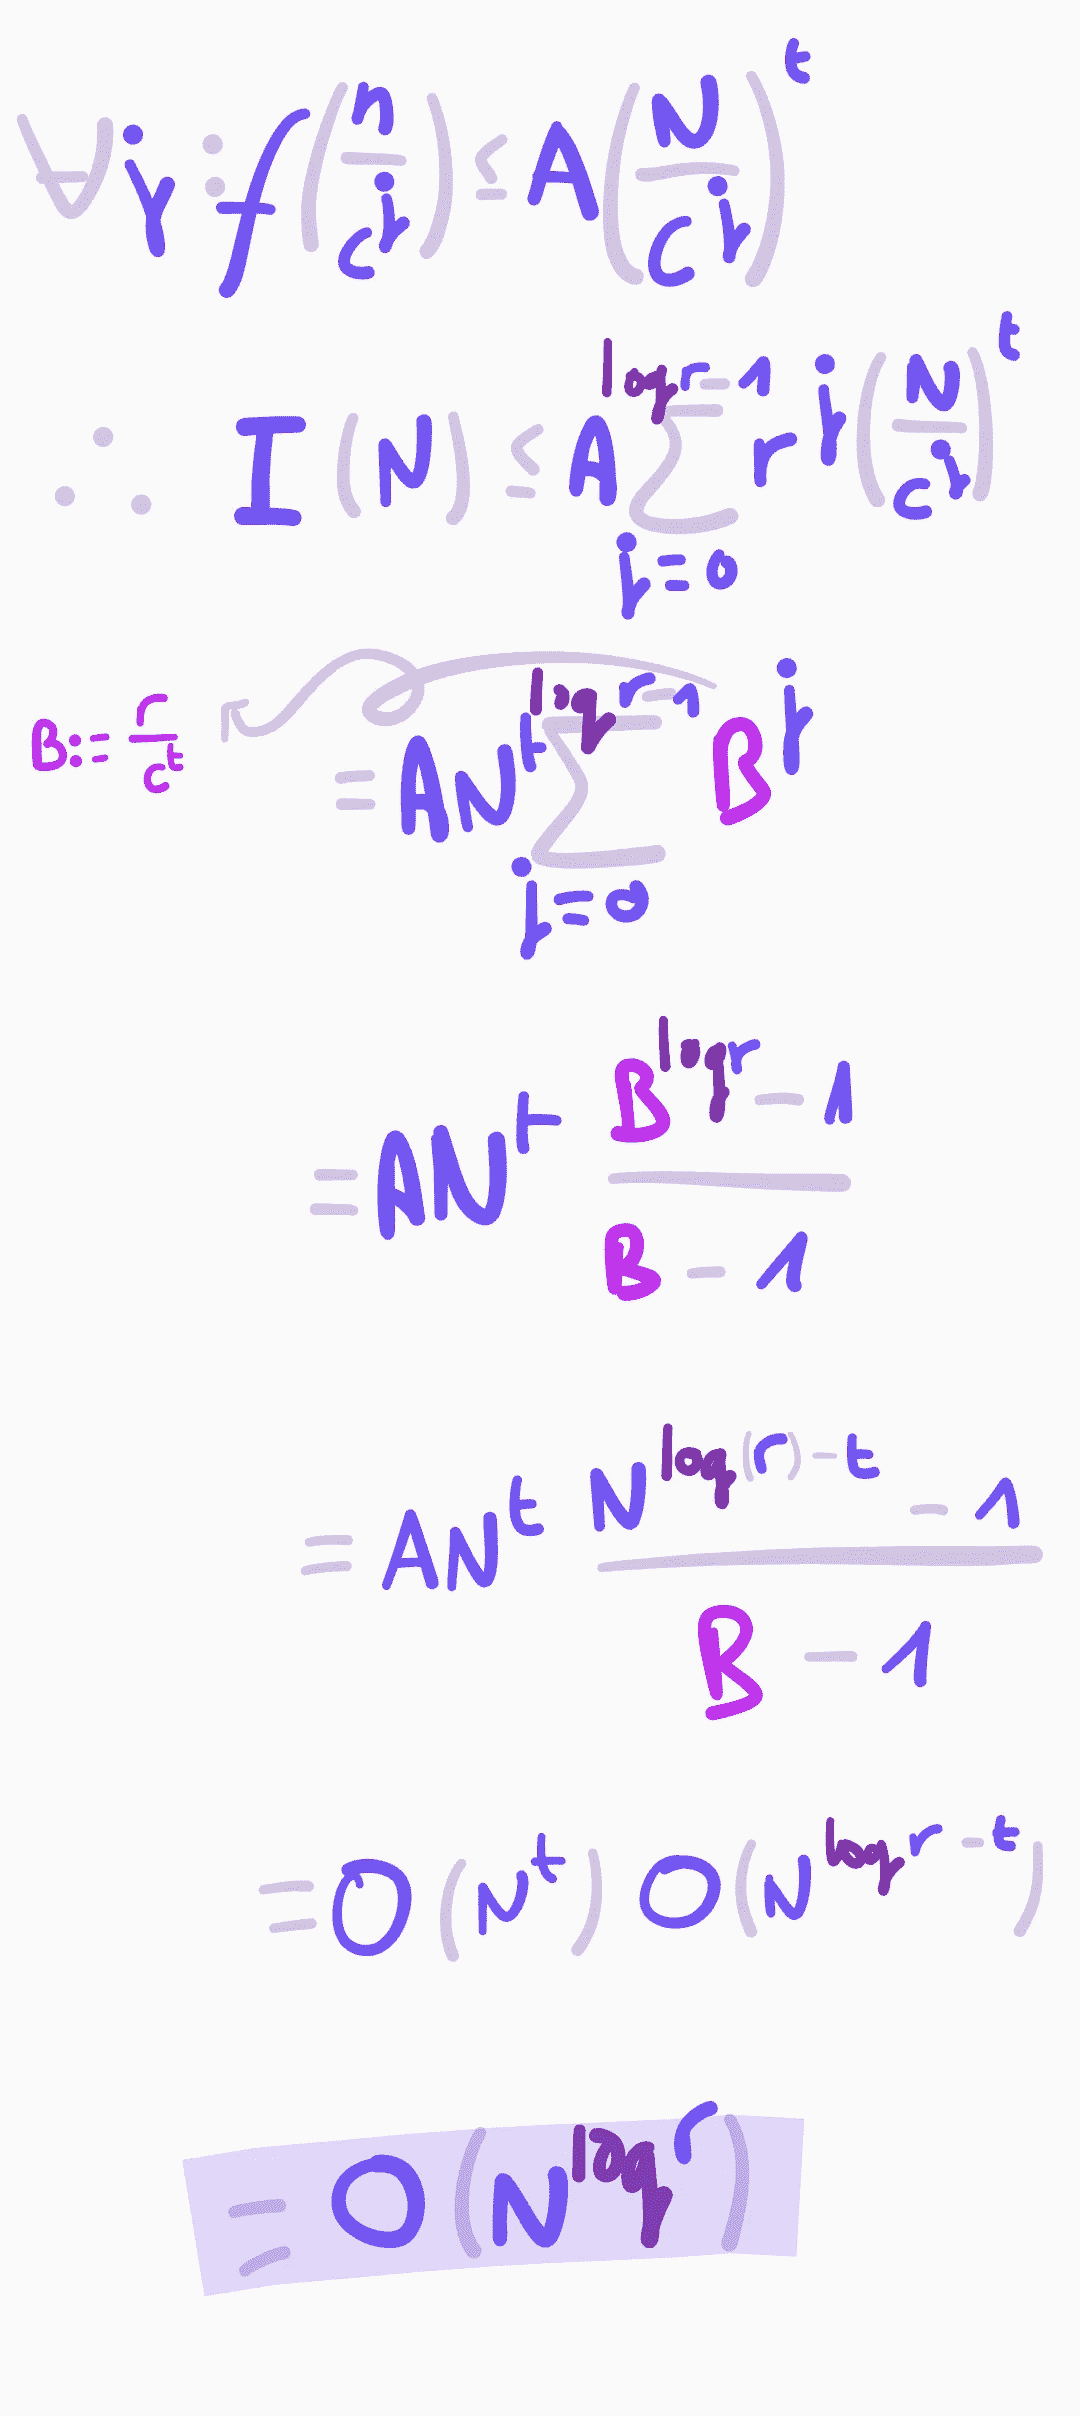 ∀j : f(n/c^j) ≤ A(N/c^j)^t
∴ I(N) ≤ A ∑_{j=0}^{log r - 1} r^j (N/c^j)^t
B := r/c^t
= AN^t ∑_{j=0}^{log r - 1} B^j
= AN^t (B^{log r} - 1)/(B - 1)
= AN^t (N^{log(r) - t} - 1)/(B - 1)
= O(N^t) O(N^{log r - t})
= O(N^{log r})